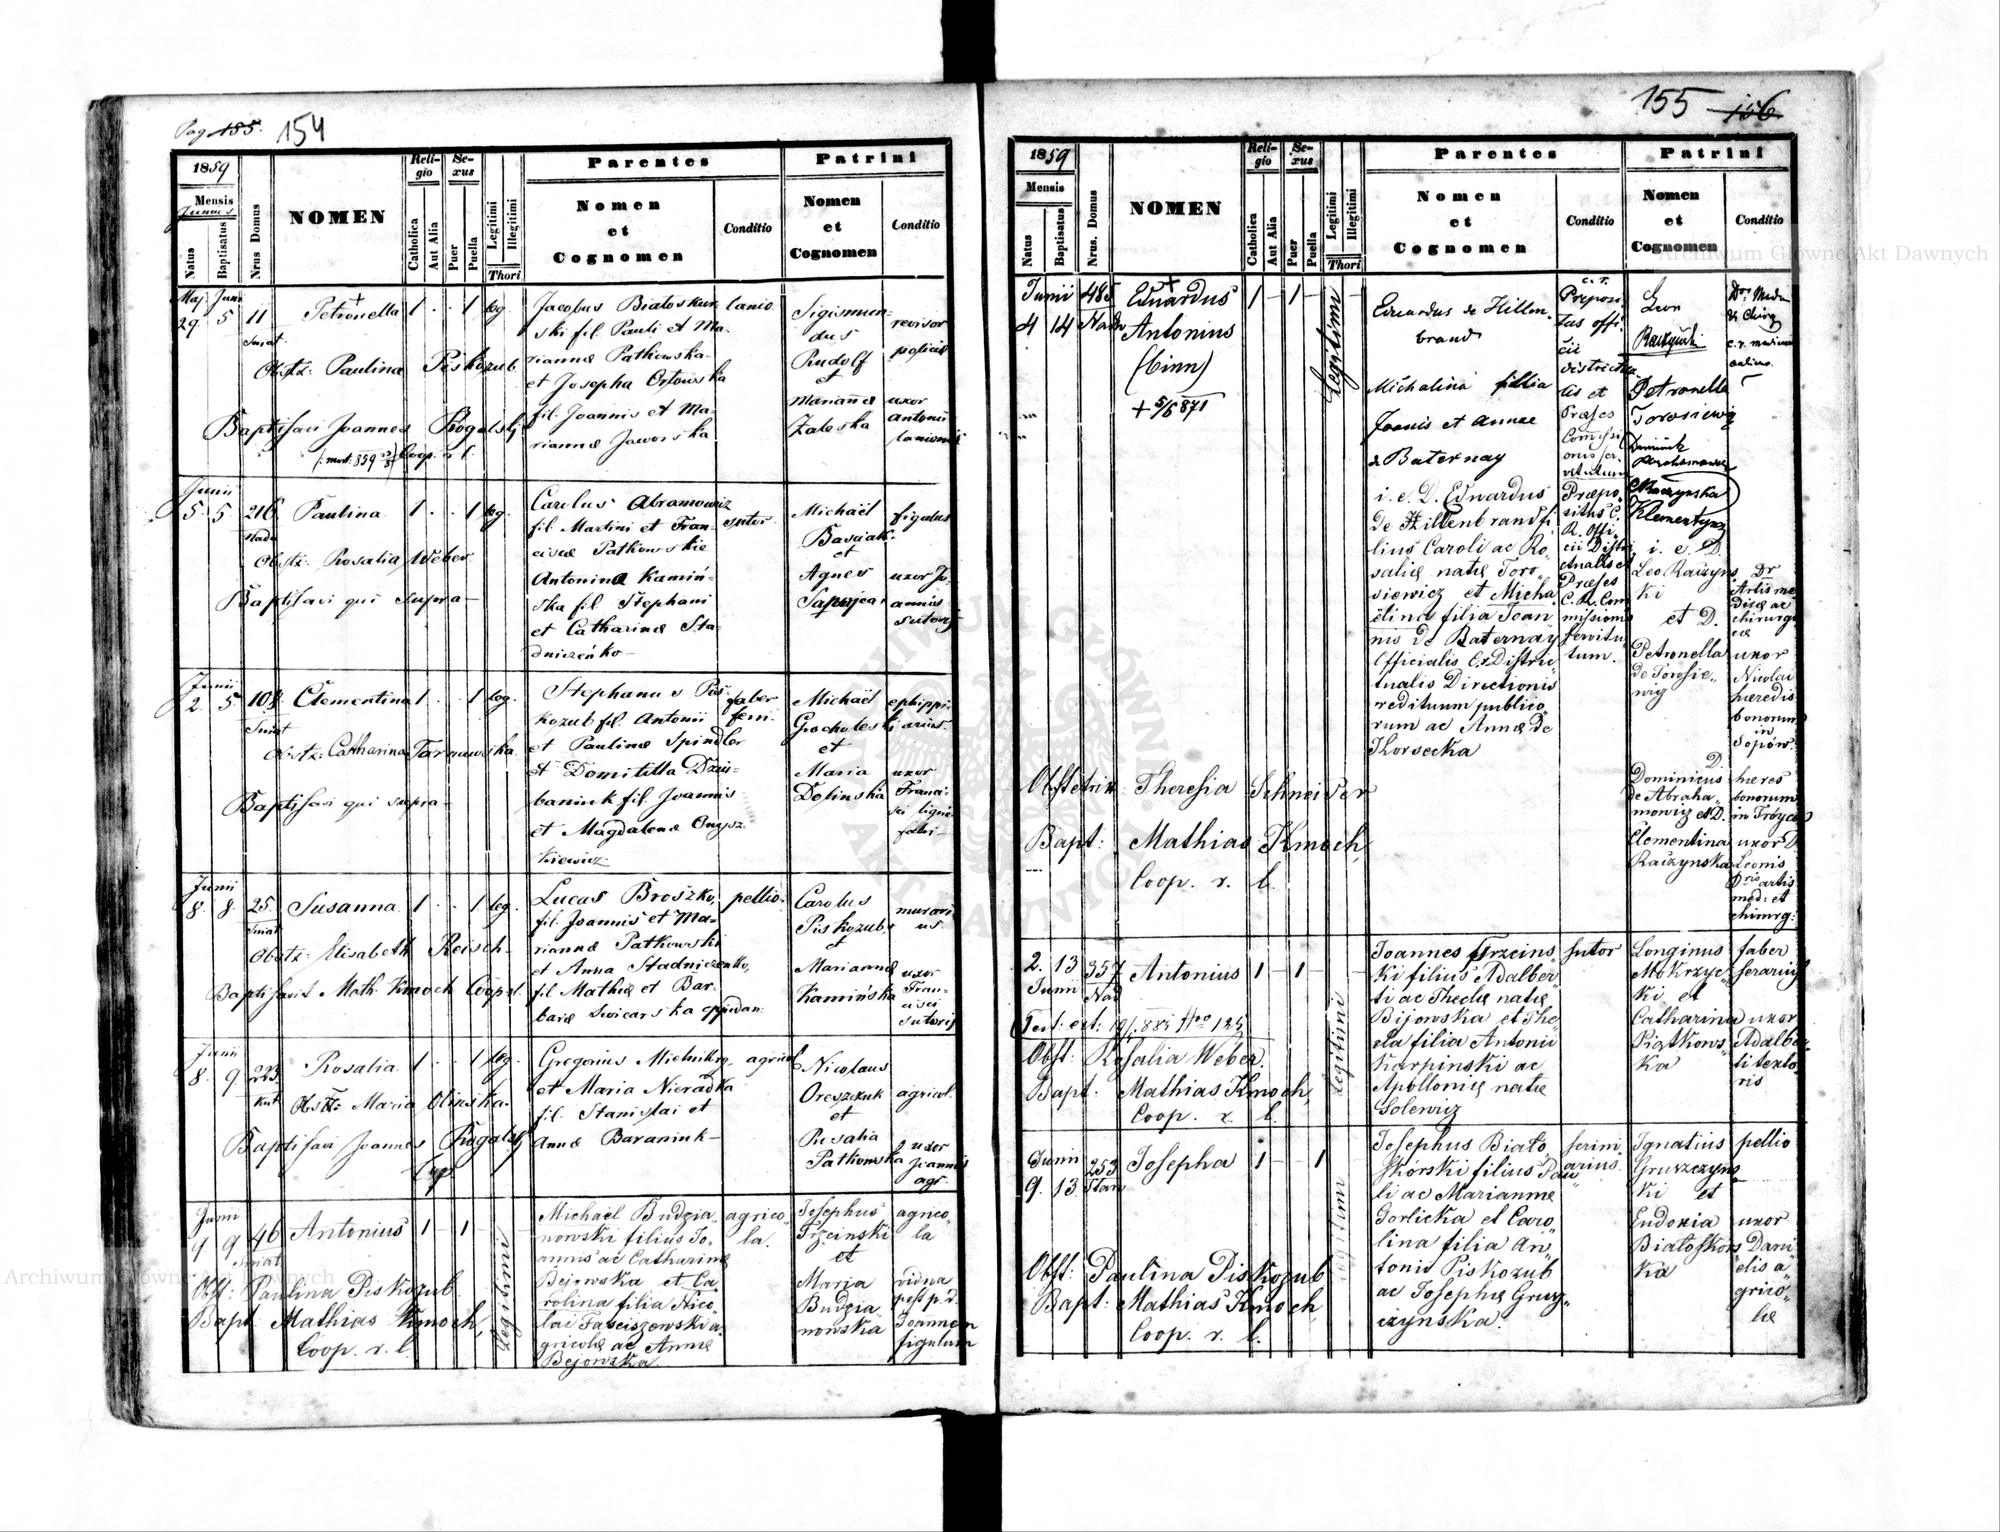 Pag. 185. 154
1859
Mensis
Junius
Natus
Baptisatus
Nrus Domus
NOMEN
Reli-
gio
Catholica
Aut Alia
Se-
xus
Puer
Puella
Legitimi
Illegitimi
Thori
Parentes
Nomen
et
Cognomen
Conditio
Patrini
Nomen
et
Cognomen
Conditio
Maj. Juni
29. 5 11 Petronella 1 . . 1 leg.
Sniat
Obstz: Paulina Piskozub
Baptisavi Joannes Rogalski
(: mort. 859 Coop. r. l.
Jacobus Białoskur-
ski fil. Pauli et Ma-
riannæ Patkowska
et Josepha Orłowska
fil. Joannis et Ma-
riannæ Jaworska
lanio
Sigismun-
dus
Rudolf
et
Marianna
Zaleska
revisor
policiæ
uxor
Antonii
lanionis
Junii
5 5 216 Paulina 1 . . 1 leg.
Nadw
Obstz. Rosalia Weber
Baptisavi qui supra
Carolus Abramowicz
fil. Martini et Fran-
ciscæ Patkowskie
Antonina Kamiń-
ska fil. Stephani
et Catharinæ Sta-
dniczeńko
sutor
Michaël
Basciak
et
Agnes
figulus
uxor Jo-
annis
sutoris
Junii
2. 5 108 Clementina 1 . . 1 leg.
Sniat
Obstz. Catharina Tarnawska
Baptisavi qui supra
Stephanus Pis-
kozub fil. Antonii
et Paulinæ Spindler
et Domitilla Dziu-
baniuk fil. Joannis
et Magdalenæ Onysz-
kiewicz
faber
ferri
Michaël
Grocholski
et
Maria
Dolinska
ephippi-
arius
uxor
Franci-
sci ligni-
fabri
Junii
8. 8. 25. Susanna 1 . . 1 leg.
Sniat
Obstz: Elisabeth Reisch
Baptisavit Math. Kmoch Coop. r. l.
Lucas Broszko,
fil. Joannis et Ma-
riannæ Patkowski
et Anna Stadniczenko,
fil. Mathiæ et Bar-
baræ Swicarska oppidan:
pellio.
Carolus
Piskozub
et
Marianna
Kamińska
murari-
us.
uxor
Fran-
cisci
sutoris
Junii
8. 9. 223. Rosalia 1 . . 1 leg.
Kut
Obstz: Maria Olinska
Baptisavi Joannes Rogalski
Gregorius Mielnikig
et Maria Nieradka
fil. Stanislai et
Annæ Baraniuk
agricol.
Nicolaus
Oreszczuk
et
Rosalia
Patkowska
agricol.
uxor
Joannis
agr.
Junii
9 9 46 Antonius 1 — 1 —
Sniat
Legitimi
Obst: Paulina Piskozub.
Bapt. Mathias Kmoch,
Coop. r. l.
Michaël Budzia-
nowski filius Jo-
annis ac Catharinæ
Bejowska et Ca-
rolina filia Nico-
lai Fasciszewski a-
gricolæ ac Annæ
Bejowska
agrico-
la.
Josephus
Trzcinski
et
Maria
Budzia-
nowska
agrico-
la
vidua
post p. d.
Joannem
figulum
155 156
1859
Mensis
Natus
Baptisatus
Nrus. Domus
NOMEN
Reli-
gio
Catholica
Aut Alia
Se-
xus
Puer
Puella
Legitimi
Illegitimi
Thori
Parentes
Nomen
et
Cognomen
Conditio
Patrini
Nomen
et
Cognomen
Conditio
Junii
4 14 485 Eduardus 1 — 1 —
Nadw Antonius
(binn)
+ 5/6 871
Legitim
Obstetrix Theresia Schneider
Bapt: Mathias Kmoch,
Coop. r. l.
Eduardus de Hillen-
brand
Michalina filia
Joanis et Annae
de Baternay
i. e. D. Edwardus
De Hillenbrand fi-
lius Caroli ac Ro-
saliæ natæ Toro-
siewicz et Micha-
ëlina filia Joan-
nis De Baternay
Officialis C. r. Distri-
ctualis Directionis
redituum publico-
rum ac Annæ De
Thorsecka
c. r.
Preposi-
tus offi-
cii
districtua-
lis et
Præses
Comissi-
onis ser-
vitutum
Præpo-
situs C.
R. Offi-
cii Distri-
ctualis et
Præses
C. R. Com-
missionis
servitu-
tum.
Leon
Raczyński
Petronella
Torosiewicz
Dominik
Abrahamowicz
Raczynska
Klementyna
i. e. D.
Leo Raczyns-
ki
et D.
Petronella
de Torosie-
wicz
D.
Dominicus
de Abraha-
mowicz et D.
Clementina
Raczynska
Dr. Medi.
& Chirg
c. r. medicus
salin.
Dr
Artis me-
dicæ ac
chirurgi-
cæ
uxor
Nicolai
hæredis
bonorum
in
Sopów
hæres
bonorum
in Tróyca
uxor D.
Leonis
Dris artis
med: et
chirurg:
2. 13 357 Antonius 1 — 1 —
Junii Nad
Legitimi
Obst: Rosalia Weber.
Bapt: Mathias Kmoch,
Coop. r. l.
Joannes Trzcins-
ki filius Adalber-
ti ac Theclæ natæ
Bijowska et The-
cla filia Antonii
Karpinski ac
Apolloniæ natæ
Golewicz
sutor
Longinus
Mokrzyc-
ki et
Catharina
Piątkows-
ka
faber
ferarius
uxor
Adalber-
ti texto-
ris
Junii
9. 13. 253 Josepha 1 — — 1
Stan
Legitim
Obst: Paulina Piskozub
Bapt: Mathias Kmoch,
Coop. r. l.
Josephus Biało-
skórski filius Pau-
li ac Mariannæ
Gorlicka et Caro-
lina filia An-
tonii Piskozub
ac Josephæ Grusz-
czynska.
ferim-
arius.
Ignatius
Gruszczyns-
ki et
Eudoxia
Białoskórs-
ka
pellio
uxor
Dani-
elis a-
grico-
læ
Archiwum Główne Akt Dawnych
Archiwum Główne Akt Dawnych
ARCHIWUM GŁÓWNE AKT DAWNYCH